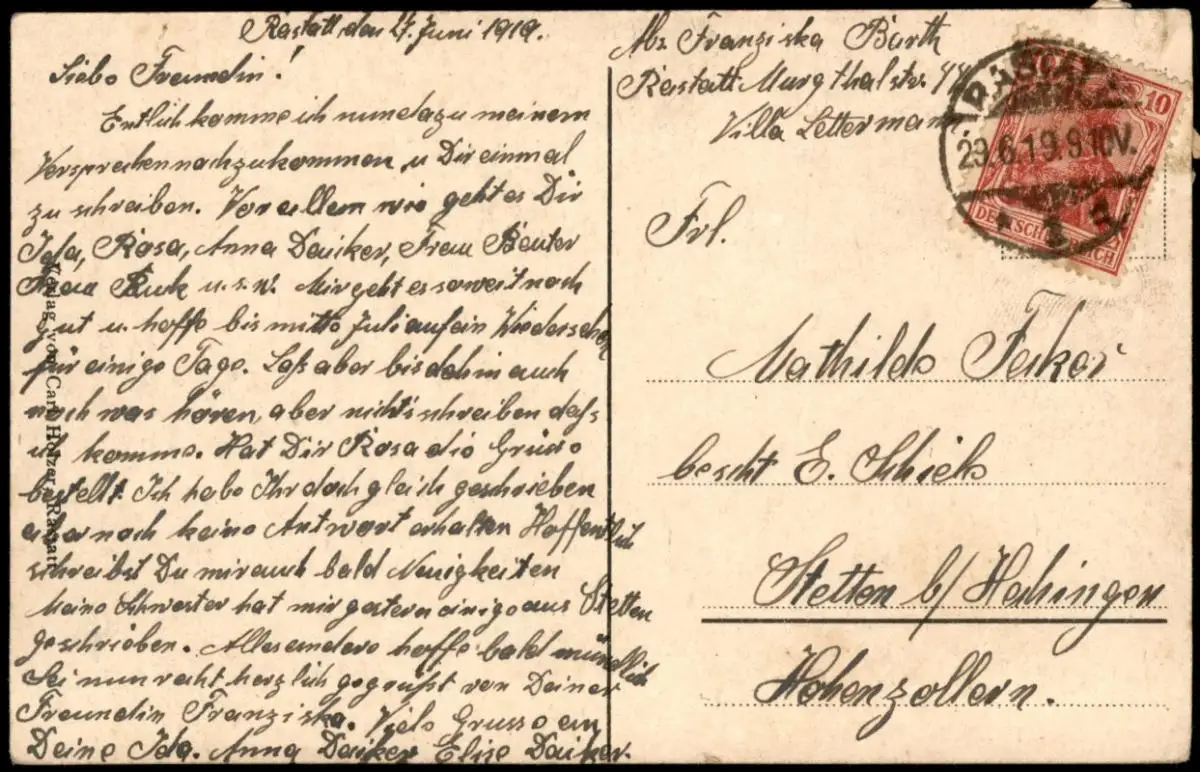 Rastatt den 27. Juni 1919.
Liebe Freundin!
Entlich komme ich nun dazu meinem
Versprechen nachzukommen u Dir einmal
zu schreiben. Vor allem wie geht es Dir
Ida, Rosa, Anna Daiker, Frau Beuter
Frau Ruk u.s.w. Mir geht es soweit noch
gut u. hoffe bis mitte Juli auf ein Wiedersehn
für einige Tage. Laß aber bis dahin auch
noch was hören, aber nicht's schreiben daß
ich komme. Hat Dir Rosa die Grüse
bestellt. Ich habe Ihr doch gleich geschrieben
aber noch keine Antwort erhalten Hoffentlich
schreibst Du mir auch bald Neuigkeiten
Meine Schwester hat mir gestern einige aus Stetten
geschrieben. Alles andere hoffe bald mündlich
Sei nun recht herzlich gegrüßt von Deiner
Freundin Franziska. Viele Grusse an
Deine Ida. Anna Daiker Elise Daiker.
Verlag von Carl Holzer, Rastatt
Franziska Barth
Rastatt Murgthalstr. 44
Villa Letterman
RASTATT
29.6.19.9-10V.
10
DEUTSCHES REICH
Frl.
Mathilde Feker
bescht E. Schick
Stetten b/ Hechingen
Hohenzollern.